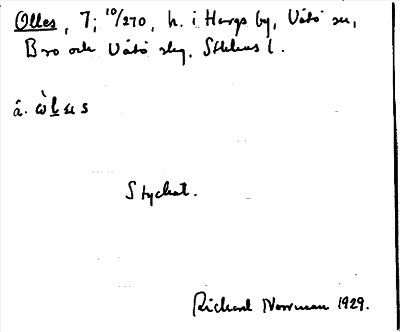 Olles, 7; 10/270, h. i Hargs by, Vätö sn,
Bro och Vätö skg, Sthlms l.
å. ὼlεs
Styckat.
Richard Norrman 1929.